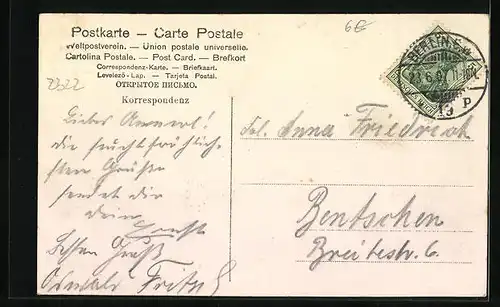 Postkarte — Carte Postale
Weltpostverein. — Union postale universelle.
Cartolina Postale. — Post Card. — Brefkort
Correspondenz-Karte. — Briefkaart.
Levelező-Lap. — Tarjeta Postal.
ОТКРЫТОЕ ПИСЬМО.
Korrespondenz
6€
2322
BERLIN S.W.
13 P
Lieber
die
Grüßen
sendet dir
dein
Ernst
Gruß
Oswald Fritsch
Frl. Anna Friedrich
Bentschen
Breitestr. 6.